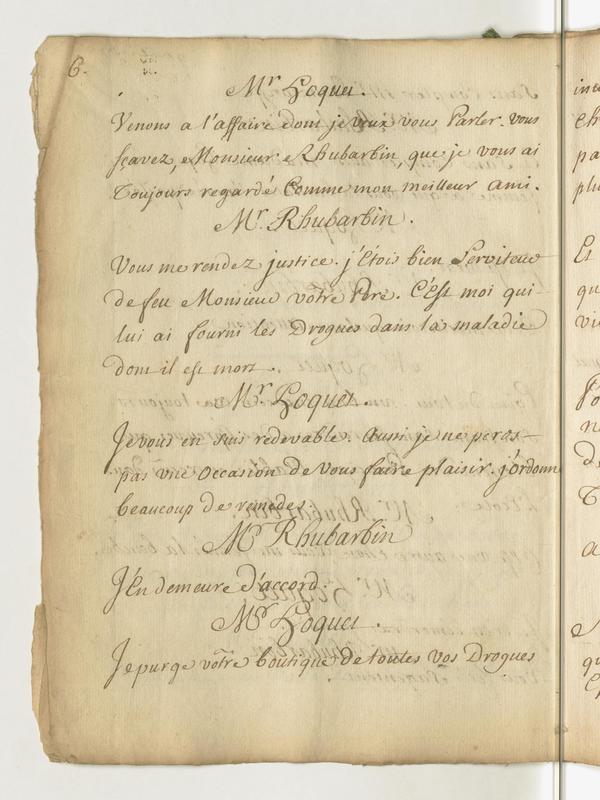 6.
Mr Hoquet.
Venons a l'affaire dont je veux vous Parler. vous
sçavez, Monsieur Rhubarbin, que je vous ai
Toujours regardé Comme mon meilleur ami.
Mr. Rhubarbin.
Vous me rendez justice. j'étois bien Serviteur
de feu Monsieur vôtre Pere. C'Est moi qui
lui ai fourni les Drogues dans la maladie
dont il est mort.
Mr. Hoquet.
Je vous en suis redevable. Aussi je ne peras
pas vne occasion de vous faire plaisir. j'ordonne
beaucoup de remedes.
Mr Rhubarbin
J'En demeure d'accord.
Mr Hoquet.
Je purge vôtre boutique de toutes vos Drogues